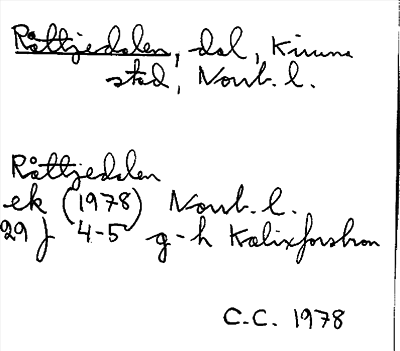 Råttjedalen, dal, Kiruna
stad, Norrb. l.
Råttjedalen
ek (1978) Norrb. l.
29 J 4-5 g-h Kalixforsbron
C.C. 1978